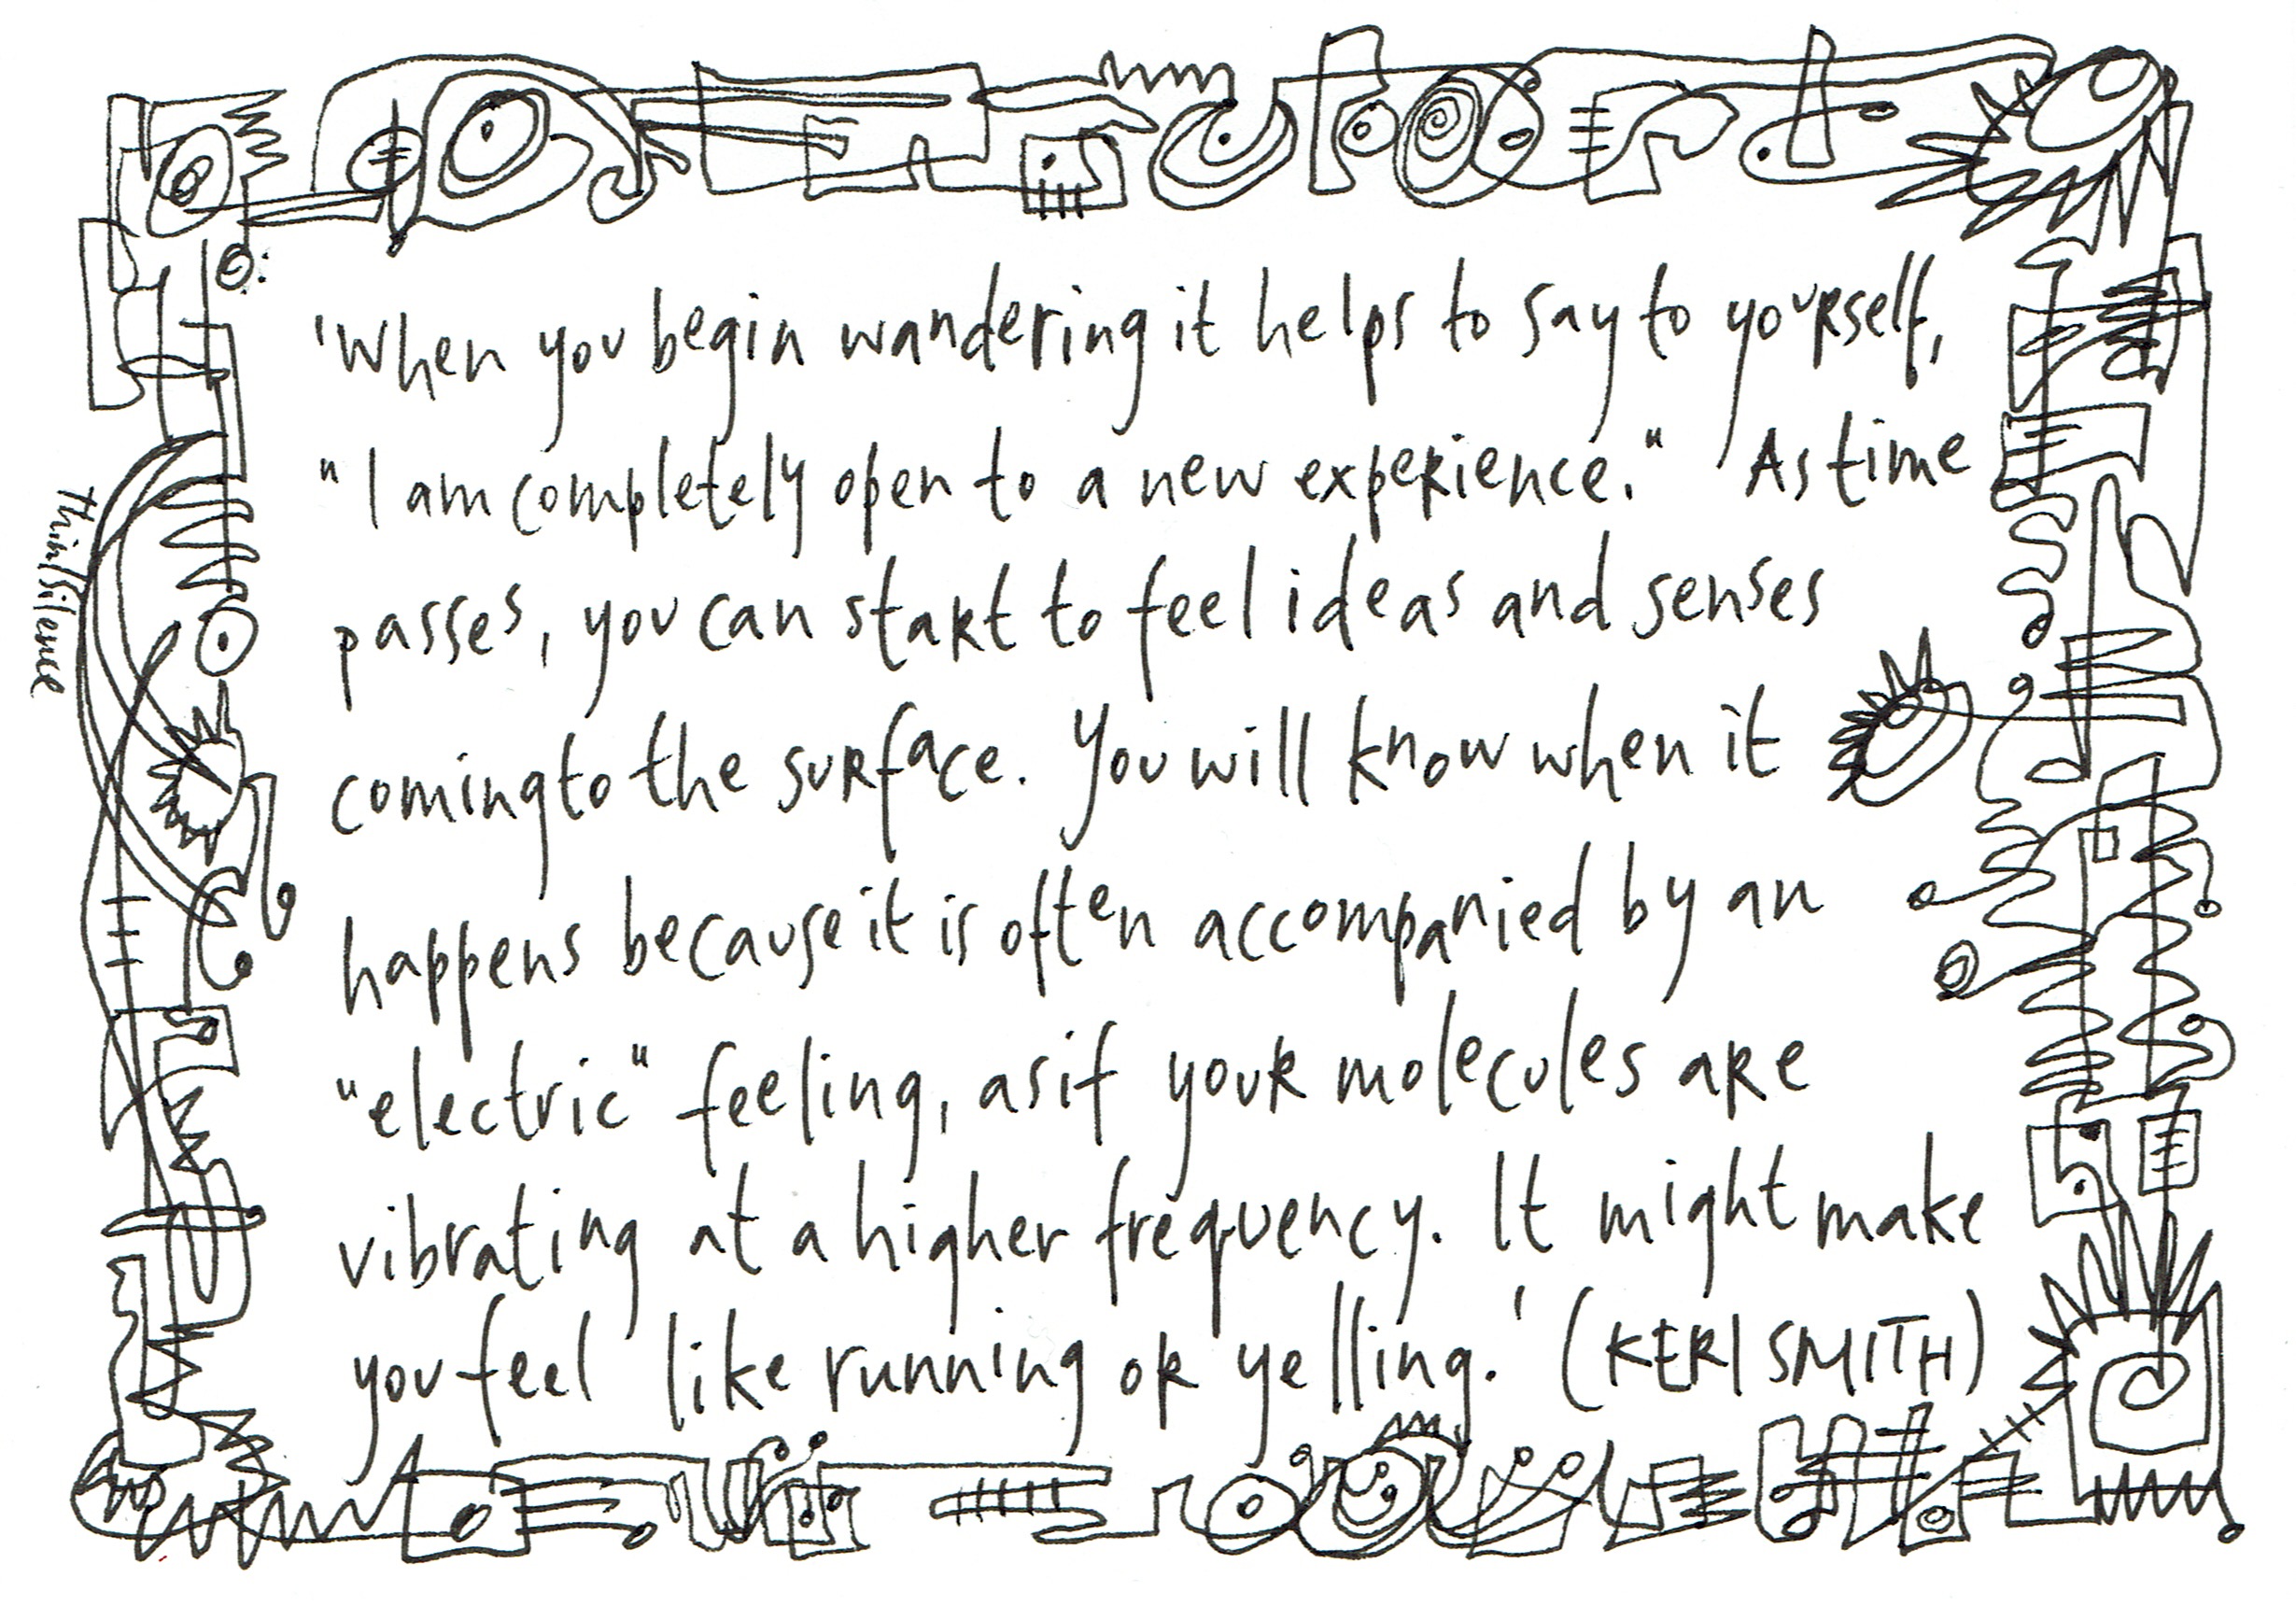 'When you begin wandering it helps to say to yourself,
"I am completely open to a new experience." As time
passes, you can start to feel ideas and senses
coming to the surface. You will know when it
happens because it is often accompanied by an
"electric" feeling, as if your molecules are
vibrating at a higher frequency. It might make
you feel like running or yelling.' (KERI SMITH)
think/silence